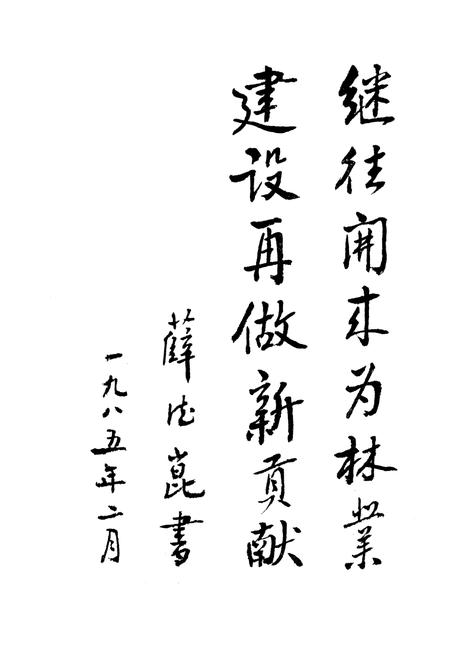 继往開来为林業
建设再做新貢献
薛德崑書
一九八五年二月